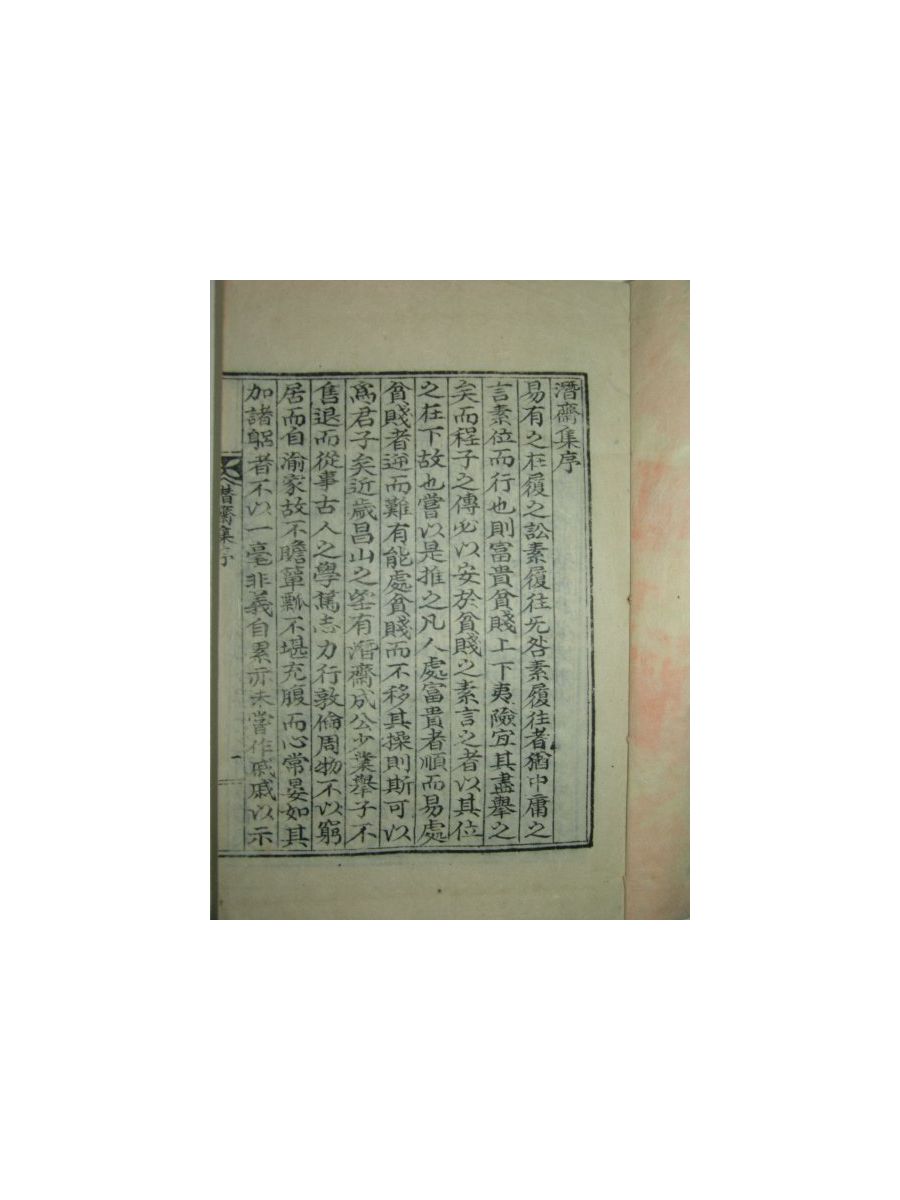 潛齋集序
易有之在履之訟素履往旡咎素履往者猶中庸之
言素位而行也則富貴貧賤上下夷險宜其盡舉之
矣而程子之傳必以安於貧賤之素言之者以其位
之在下故也嘗以是推之凡人處富貴者順而易處
貧賤者逆而難有能處貧賤而不移其操則斯可以
爲君子矣近歲昌山之望有潛齋成公少業舉子不
售退而從事古人之學篤志力行敦倫周物不以窮
居而自渝家故不贍簞瓢不堪充腹而心常晏如其
加諸躬者不以一毫非義自累亦未嘗作戚戚以示
潛齋集序
一